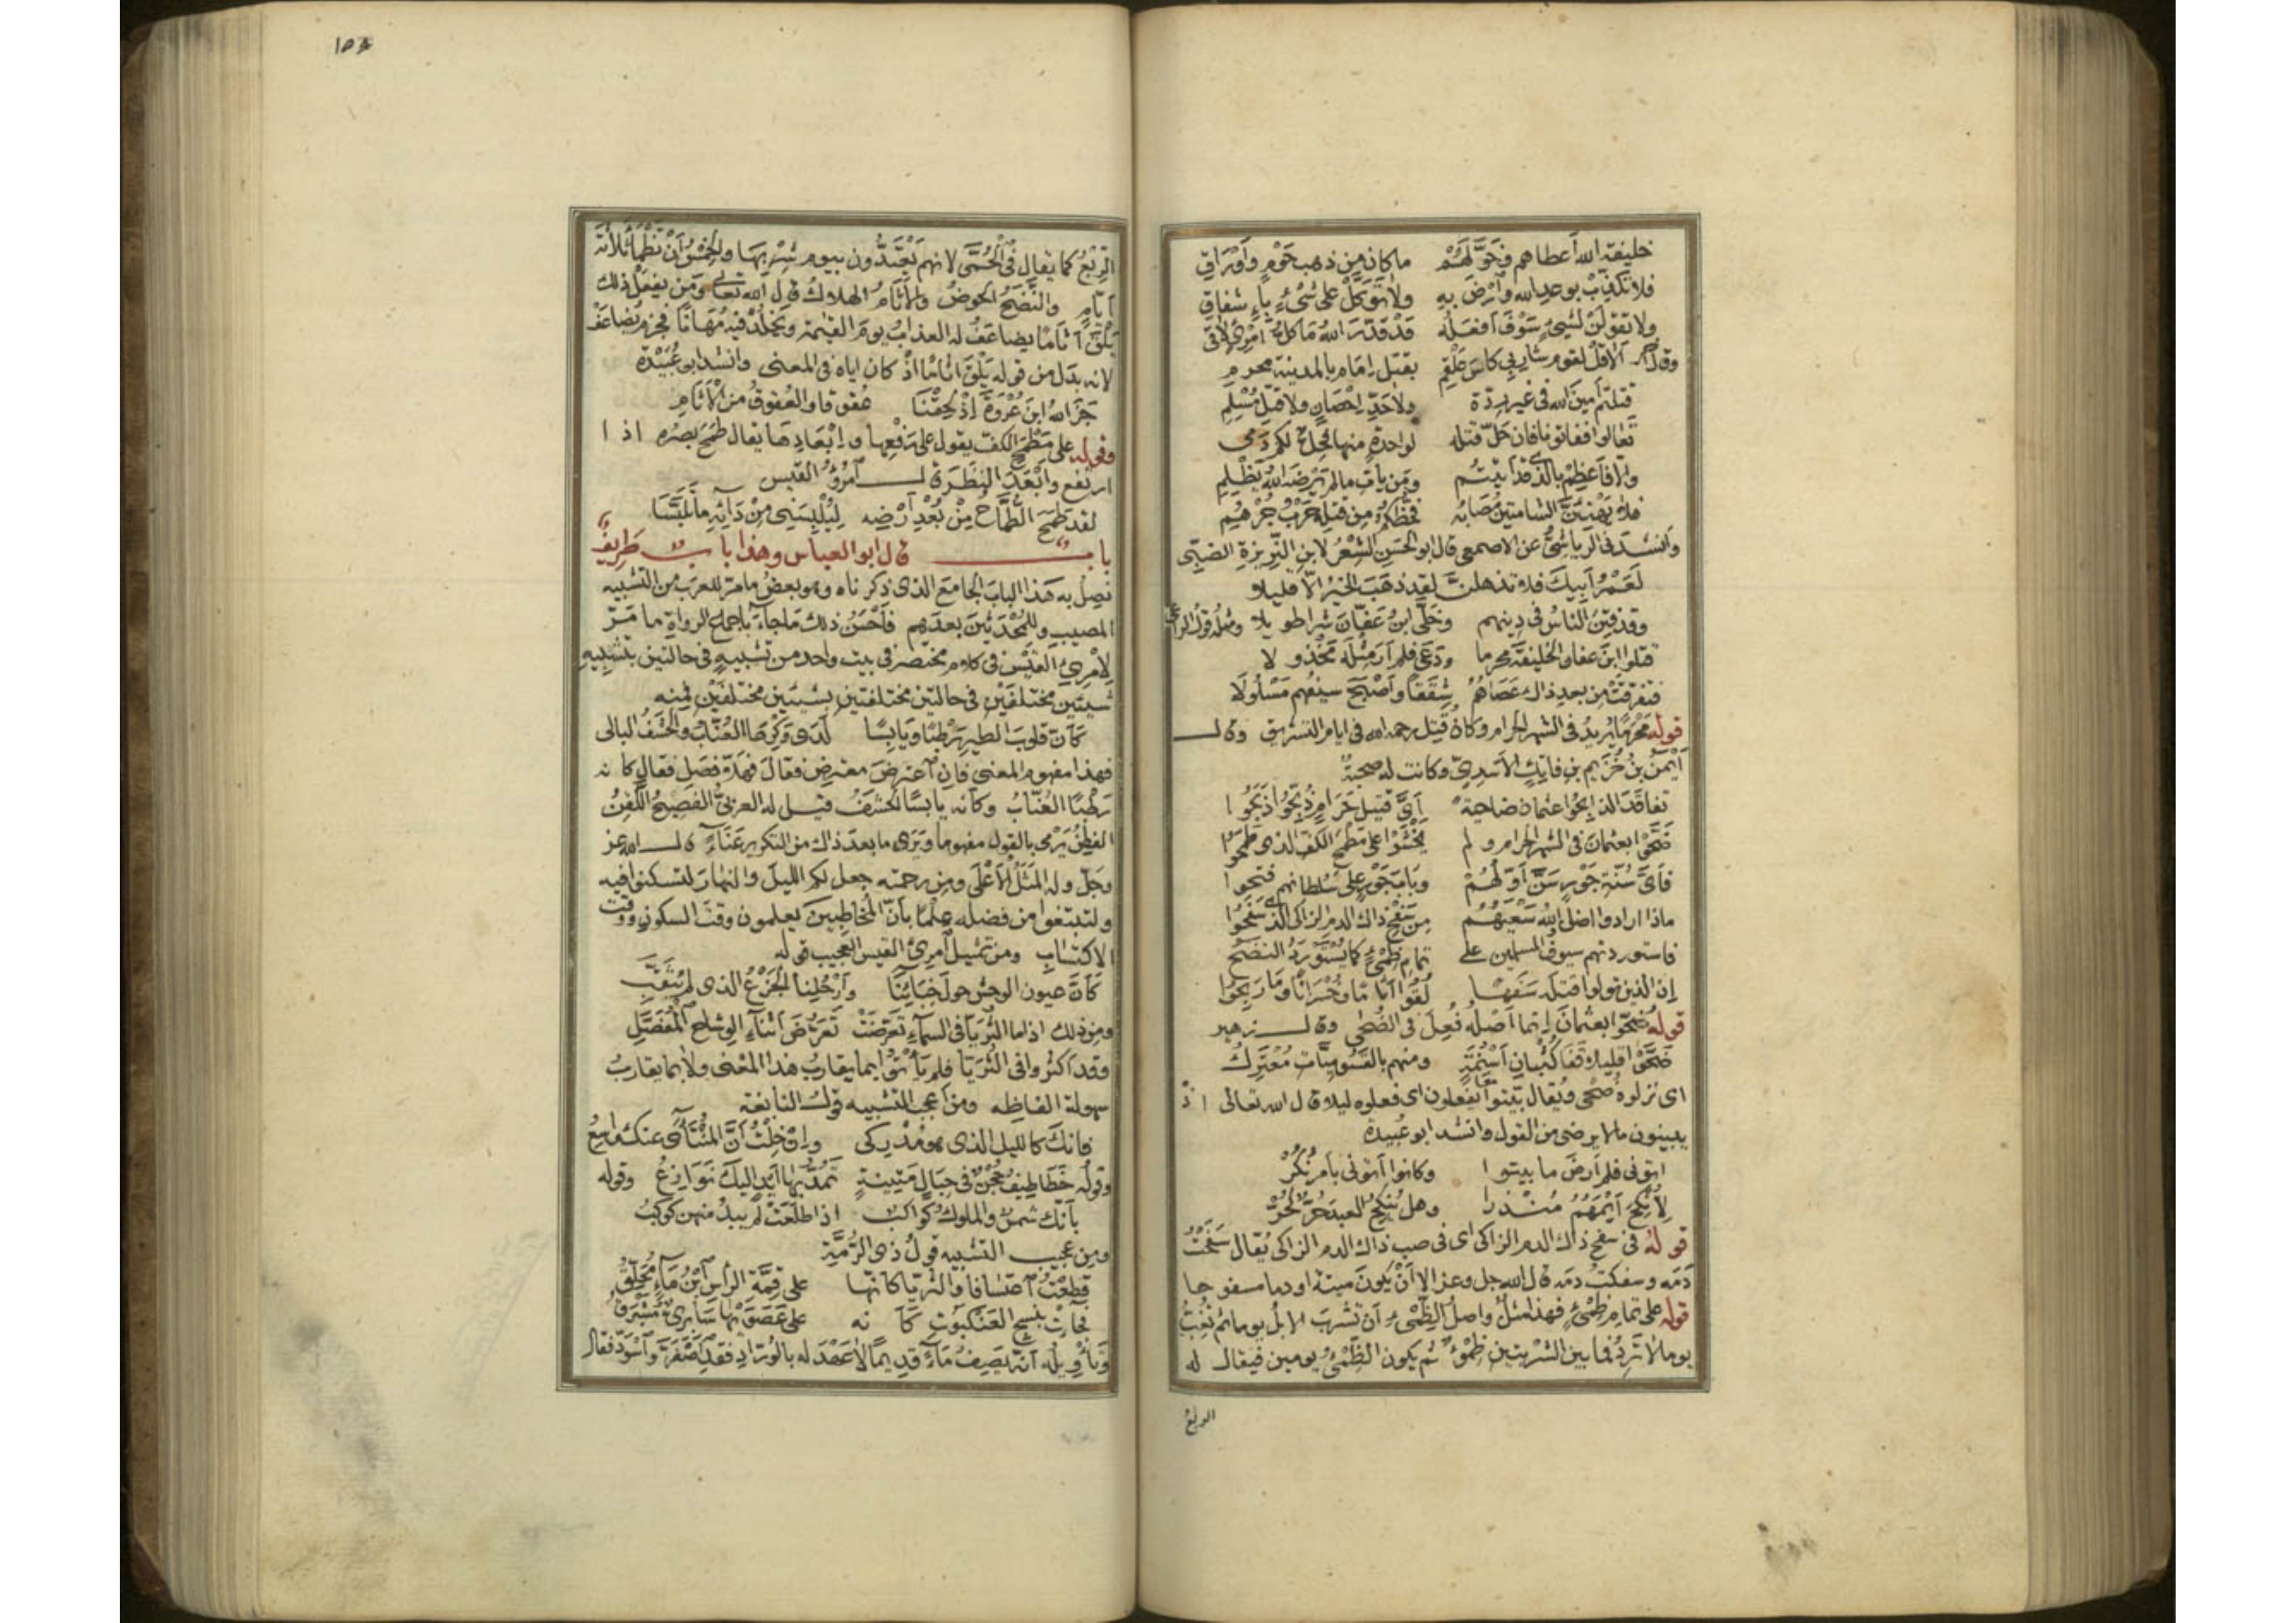 خليفة الله أعطاهم فخولهم ما كان من ذهب حوم وأوراق
فلا تكذبن بوعد الله وارض به ولا توكل على شيء بإشفاق
ولا تقولن لشيء سوف أفعله قد قدر الله ما كل امرئ لاق
وقال آخر ألا قل لقوم شاربي كاس علقم بقتل إمام بالمدينة محرم
قتلتم أمين الله في غير ردة ولا حد إحصان ولا قتل مسلم
تعالوا ففاتونا فإن حل قتله لواحدة منها فحل لكم دمي
وإلا فأعظم بالذي قد أتيتم ومن يأت ما لم يرضه الله يظلم
فلا يهنئن الشامتين مصابه فحظكم من قتله حرب جرهم
وأنشدني الرياشي عن الاصمعي قال ابو الحسن الشعر لابن الغريزة الضبي
لعمر أبيك فلا تذهلن لقد ذهب الخير الا قليلا
وقد فتن الناس في دينهم وخلى ابن عفان شرا طويلا ومثله قول الراعي
قتلوا ابن عفان الخليفة محرما ودعى فلم أر مثله مخذولا
فتفرقت من بعد ذاك عصاهم شققا وأصبح سيفهم مسلولا
قوله محرما يريد في الشهر الحرام وكان قتل رحمه الله في ايام التشريق وقال
أيمن بن خريم بن فاتك الاسدي وكانت له صحبة
تفاقد الذابحوا عثمان ضاحية أي قتيل حرام ذبحوا ذبحوا
ضحوا بعثمان في الشهر الحرام ولم يخشوا على مطمح الكف الذي طمحوا
فأي سنة جور سن أولهم وباب جور على سلطانهم فتحوا
ماذا ارادوا اضل الله سعيهم من سفح ذاك الدم الزاكي الذي سفحوا
فاستوردتهم سيوف المسلمين على تمام ظمء كما يستورد النضح
إن الذين تولوا قتله سفها لقوا أثاما وخسرانا وما ربحوا
قوله ضحوا بعثمان إنما أصله فعل في الضحى وقال زهير
ضحوا قليلا قفا كثبان أسنمة ومنهم بالقسوميات معترك
اى نزلوه ضحى ويقال بيتوا يفعلون اى فعلوه ليلا قال الله تعالى اذ
يبيتون مالا يرضى من القول وانشد ابو عبيدة
اتوني فلم أرض ما بيتوا وكانوا أتوني بأمر نكر
لأنكح أيمهم منذرا وهل ينكح العبد حر لحر
قوله في سفح ذاك الدم الزاكى اى في صب ذاك الدم الزاكى يقال سفحت
دمه وسفكت دمه قال الله جل وعز الا أن يكون ميتة او دما مسفوحا
قوله على تمام ظمء فهذا مثل واصل الظمء أن تشرب الابل يوما ثم تغب
يوما لا ترد فما بين الشربتين ظمؤ ثم يكون الظمء يومين فيقال له
الربع
الربع كما يقال في الحمى لانهم يعتدون بيوم شربها والخمس أن تظما ثلاثة
أيام والنضح الحوض والاثام الهلاك قال الله تعالى ومن يفعل ذلك
يلق أثاما يضاعف له العذاب يوم القيمة ويخلد فيه مهانا فجزم يضاعف
لانه بدل من قوله يلق اثاما اذ كان اياه في المعنى وانشد ابو عبيدة
جزى الله ابن عروة إذ لحقنا عقوقا والعقوق من الأثام
وقوله على مطمح الكف يقول على رفعها وإبعادها يقال طمح بصره اذا
ارتفع وأبعد النظرة قال امرؤ القيس
لقد طمح الطماح من بعد أرضه ليلبسني من دائه ما تلبسا
باب قال ابو العباس وهذا باب طريف
نصل به هذا الباب الجامع الذى ذكرناه وهو بعض ما مر للعرب من التشبيه
المصيب وللمحدثين بعدهم فأحسن ذلك ما جاء بإجماع الرواة ما مر
لامرئ القيس في كلام مختصر في بيت واحد من تشبيه في حالتين بتشبيه
شيئين مختلفين في حالتين مختلفتين بشيئين مختلفين فمنه
كأن قلوب الطير رطبا ويابسا لدى وكرها العناب والحشف البالى
فهذا مفهوم المعنى فإن اعترض معترض فقال فهلا فصل فقال كانه
رطبا العناب وكأنه يابسا الحشف قيل له العربي الفصيح اللقن
الفطن يرمى بالقول مفهوما ويرى ما بعد ذاك من التكرير عناء قال الله عز
وجل وله المثل الأعلى ومن رحمته جعل لكم الليل والنهار لتسكنوا فيه
ولتبتغوا من فضله علما بأن المخاطبين يعلمون وقت السكون ووقت
الاكتساب ومن تمثيل امرئ القيس العجيب قوله
كأن عيون الوحش حول خبائنا وأرحلنا الجزع الذى لم يثقب
ومن ذلك اذا ما الثريا في السماء تعرضت تعرض أثناء الوشاح المفصل
وقد اكثروا في الثريا فلم يأتوا بما يقارب هذا المعنى ولا بما يقارب
سهولة الفاظه ومن أعجب التشبيه قول النابغة
فانك كالليل الذى هو مدركى وإن خلت أن المنتأى عنك واسع
وقوله خطاطيف حجن في حبال متينة تمد بها أيد اليك نوازع وقوله
بأنك شمس والملوك كواكب اذا طلعت لم يبد منهن كوكب
ومن عجيب التشبيه قول ذى الرمة
قطعت اعتسافا والثريا كأنها على قمة الرأس ابن ماء محلق
فجاءت بنسج العنكبوت كأنه على عصويها سابري مشبرق
وتأويله أنه يصف ماء قديما لا عهد له بالوراد فقد اصفر واسود فقال